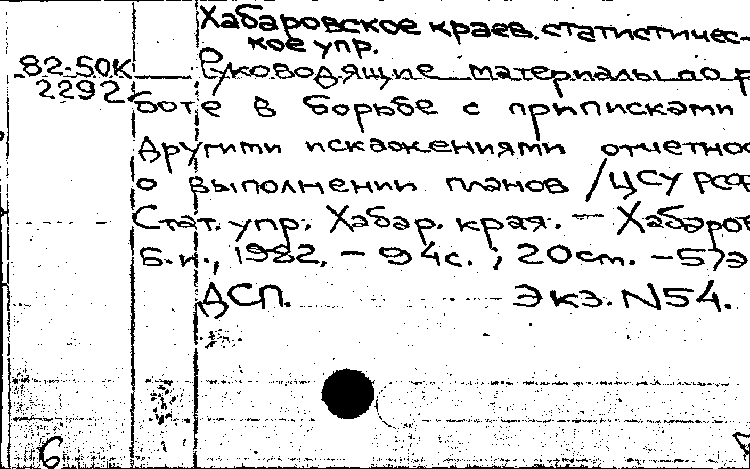 Хабаровское краев. статистичес-
кое упр.
82-50К Руководящие материалы по р
2292 боте в борьбе с приписками
другими искажениями отчетнос
о выполнении планов /ЦСУ РСФ
Стат. упр. Хабар. края. — Хабаров
Б.и., 1982. – 94с. ; 20 см. – 57э
ДСП. Экз. N54.
6